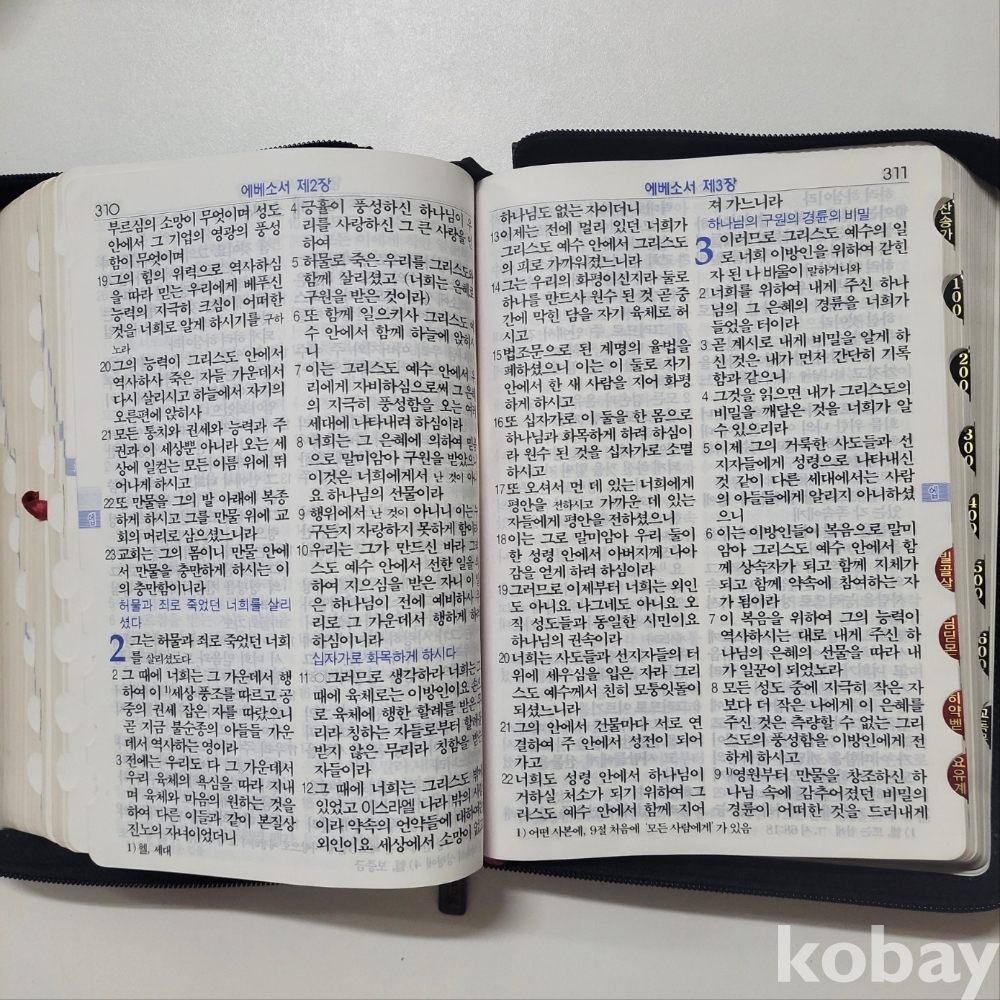 에베소서 제2장
310
부르심의 소망이 무엇이며 성도
안에서 그 기업의 영광의 풍성
함이 무엇이며
19 그의 힘의 위력으로 역사하심
을 따라 믿는 우리에게 베푸신
능력의 지극히 크심이 어떠한
것을 너희로 알게 하시기를 구하
노라
20 그의 능력이 그리스도 안에서
역사하사 죽은 자들 가운데서
다시 살리시고 하늘에서 자기의
오른편에 앉히사
21 모든 통치와 권세와 능력과 주
권과 이 세상뿐 아니라 오는 세
상에 일컫는 모든 이름 위에 뛰
어나게 하시고
22 또 만물을 그의 발 아래에 복종
하게 하시고 그를 만물 위에 교
회의 머리로 삼으셨느니라
23 교회는 그의 몸이니 만물 안에
서 만물을 충만하게 하시는 이
의 충만함이니라
허물과 죄로 죽었던 너희를 살리
셨다
2 그는 허물과 죄로 죽었던 너희
를 살리셨도다
2 그 때에 너희는 그 가운데서 행
하여 이 1)세상 풍조를 따르고 공
중의 권세 잡은 자를 따랐으니
곧 지금 불순종의 아들들 가운
데서 역사하는 영이라
3 전에는 우리도 다 그 가운데서
우리 육체의 욕심을 따라 지내
며 육체와 마음의 원하는 것을
하여 다른 이들과 같이 본질상
진노의 자녀이었더니
1) 헬, 세대
4 긍휼이 풍성하신 하나님이 우
리를 사랑하신 그 큰 사랑을 인
하여
5 허물로 죽은 우리를 그리스도와
함께 살리셨고 (너희는 은혜로
구원을 받은 것이라)
6 또 함께 일으키사 그리스도 예
수 안에서 함께 하늘에 앉히시
니
7 이는 그리스도 예수 안에서 우
리에게 자비하심으로써 그 은혜
의 지극히 풍성함을 오는 여러
세대에 나타내려 하심이라
8 너희는 그 은혜에 의하여 믿음
으로 말미암아 구원을 받았으니
이것은 너희에게서 난 것이 아니
요 하나님의 선물이라
9 행위에서 난 것이 아니니 이는 누
구든지 자랑하지 못하게 함이라
10 우리는 그가 만드신 바라 그리
스도 예수 안에서 선한 일을 위
하여 지으심을 받은 자니 이 일
은 하나님이 전에 예비하사 우
리로 그 가운데서 행하게 하려
하심이니라
십자가로 화목하게 하시다
11 그러므로 생각하라 너희는 그
때에 육체로는 이방인이요 손으
로 육체에 행한 할례를 받은 무
리라 칭하는 자들로부터 할례를
받지 않은 무리라 칭함을 받는
자들이라
12 그 때에 너희는 그리스도 밖에
있었고 이스라엘 나라 밖의 사람
이라 약속의 언약들에 대하여는
외인이요 세상에서 소망이 없고
에베소서 제3장
311
하나님도 없는 자이더니
13 이제는 전에 멀리 있던 너희가
그리스도 예수 안에서 그리스도
의 피로 가까워졌느니라
14 그는 우리의 화평이신지라 둘로
하나를 만드사 원수 된 것 곧 중
간에 막힌 담을 자기 육체로 허
시고
15 법조문으로 된 계명의 율법을
폐하셨으니 이는 이 둘로 자기
안에서 한 새 사람을 지어 화평
하게 하시고
16 또 십자가로 이 둘을 한 몸으로
하나님과 화목하게 하려 하심이
라 원수 된 것을 십자가로 소멸
하시고
17 또 오셔서 먼 데 있는 너희에게
평안을 전하시고 가까운 데 있는
자들에게 평안을 전하셨으니
18 이는 그로 말미암아 우리 둘이
한 성령 안에서 아버지께 나아
감을 얻게 하려 하심이라
19 그러므로 이제부터 너희는 외인
도 아니요 나그네도 아니요 오
직 성도들과 동일한 시민이요
하나님의 권속이라
20 너희는 사도들과 선지자들의 터
위에 세우심을 입은 자라 그리
스도 예수께서 친히 모퉁잇돌이
되셨느니라
21 그의 안에서 건물마다 서로 연
결하여 주 안에서 성전이 되어
가고
22 너희도 성령 안에서 하나님이
거하실 처소가 되기 위하여 그
리스도 예수 안에서 함께 지어
1) 어떤 사본에, 9절 처음에 '모든 사람에게' 가 있음
져 가느니라
하나님의 구원의 경륜의 비밀
3 이러므로 그리스도 예수의 일
로 너희 이방인을 위하여 갇힌
자 된 나 바울이 말하거니와
2 너희를 위하여 내게 주신 하나
님의 그 은혜의 경륜을 너희가
들었을 터이라
3 곧 계시로 내게 비밀을 알게 하
신 것은 내가 먼저 간단히 기록
함과 같으니
4 그것을 읽으면 내가 그리스도의
비밀을 깨달은 것을 너희가 알
수 있으리라
5 이제 그의 거룩한 사도들과 선
지자들에게 성령으로 나타내신
것 같이 다른 세대에서는 사람
의 아들들에게 알리지 아니하셨
으니
6 이는 이방인들이 복음으로 말미
암아 그리스도 예수 안에서 함
께 상속자가 되고 함께 지체가
되고 함께 약속에 참여하는 자
가 됨이라
7 이 복음을 위하여 그의 능력이
역사하시는 대로 내게 주신 하
나님의 은혜의 선물을 따라 내
가 일꾼이 되었노라
8 모든 성도 중에 지극히 작은 자
보다 더 작은 나에게 이 은혜를
주신 것은 측량할 수 없는 그리
스도의 풍성함을 이방인에게 전
하게 하시고
9 1)영원부터 만물을 창조하신 하
나님 속에 감추어졌던 비밀의
경륜이 어떠한 것을 드러내게
엡
엡
찬송가
100
200
300
400
500
600
빌골살
딤딛몬
히약벧
요유계
kobay